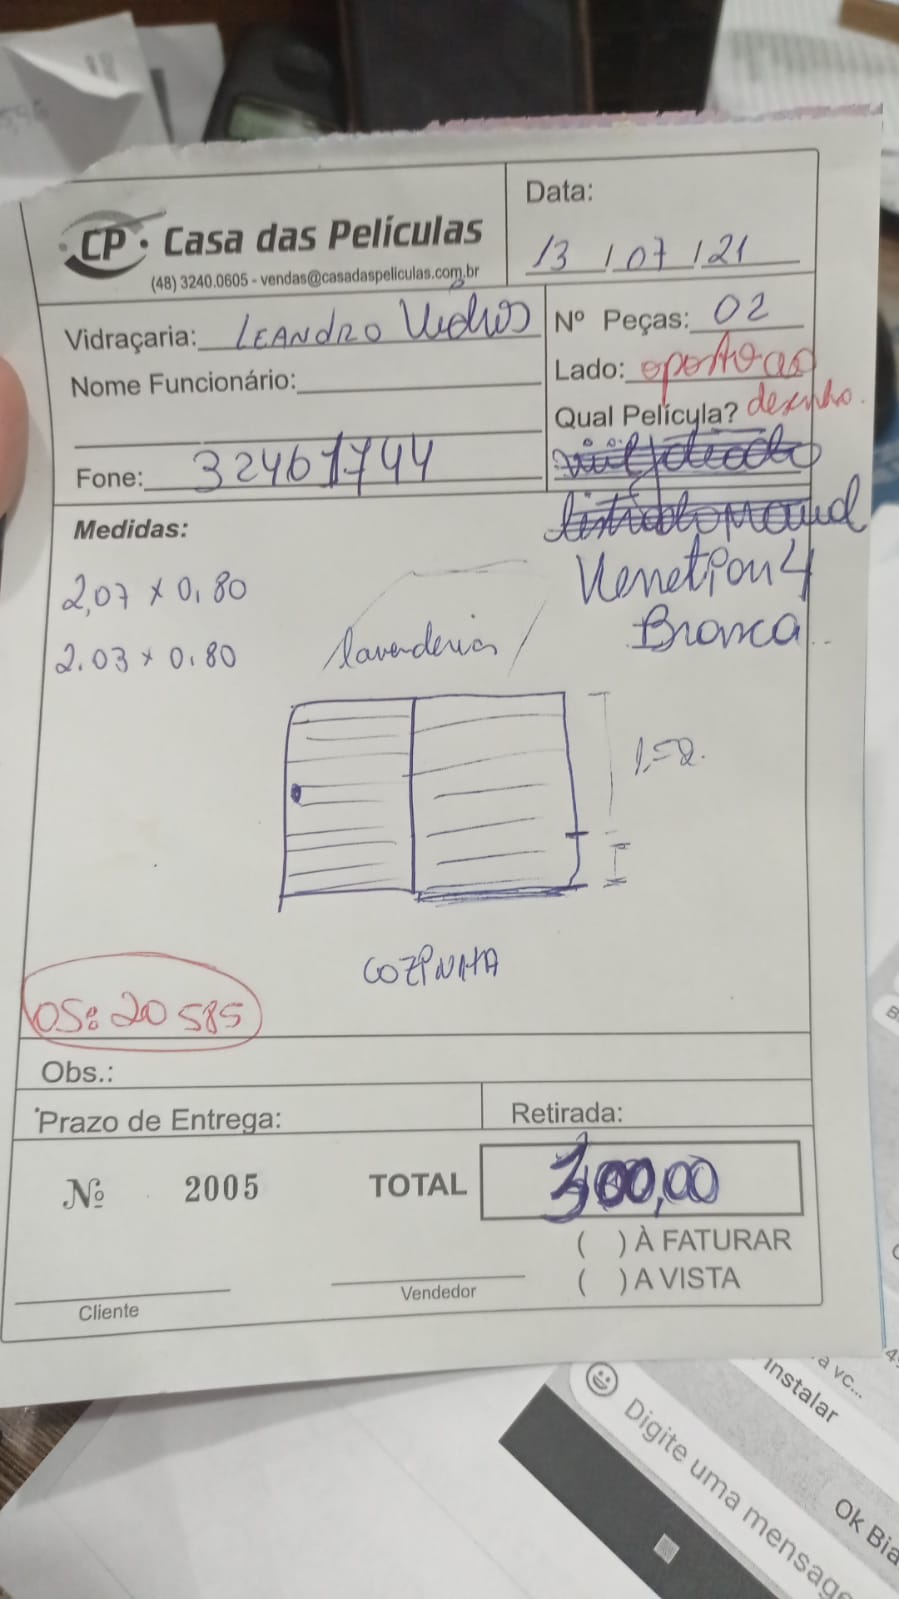 CP · Casa das Películas
(48) 3240.0605 - vendas@casadaspeliculas.com.br
Data:
13 / 07 / 21
Vidraçaria: LEANDRO Vidros
Nº Peças: 02
Nome Funcionário:
Lado: oposto ao
desenho.
Qual Película?
Fone: 32461744
Medidas:
Venetian 4
Branca
2,07 x 0,80
2.03 x 0.80
lavanderia
1,52.
COZINHA
OS: 20585
Obs.:
Prazo de Entrega:
Retirada:
Nº 2005
TOTAL 300,00
( ) À FATURAR
( ) A VISTA
Cliente
Vendedor
a vc...
Instalar
Digite uma mensage
Ok Bia